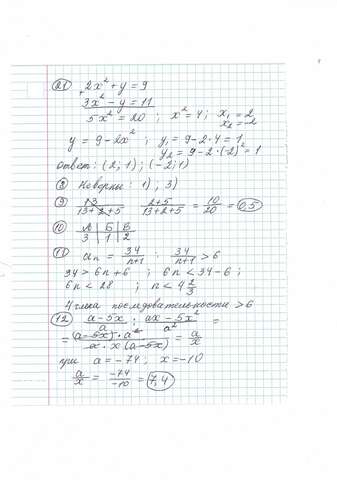 21) 2x² + y = 9
+
3x² - y = 11
5x² = 20 ; x² = 4 ; x₁ = 2
x₂ = -2
y = 9 - 2x² ; y₁ = 9 - 2·4 = 1
y₂ = 9 - 2·(-2)² = 1
Ответ: (2; 1) ; (-2; 1)
8) Неверны: 1), 3)
9) 13/(13+2+5) (2+5)/(13+2+5) = 10/20 = 0,5
10) А | Б | В
3 | 1 | 2
11) aₙ = 34/(n+1) ; 34/(n+1) > 6
34 > 6n + 6 ; 6n < 34 - 6 ;
6n < 28 ; n < 4 2/3
4 члена последовательности > 6
12) (a-5x)/a : (ax-5x²)/a² =
= (a-5x)·a²/(a·x(a-5x)) = a/x
при a = -74 ; x = -10
a/x = -74/-10 = 7,4